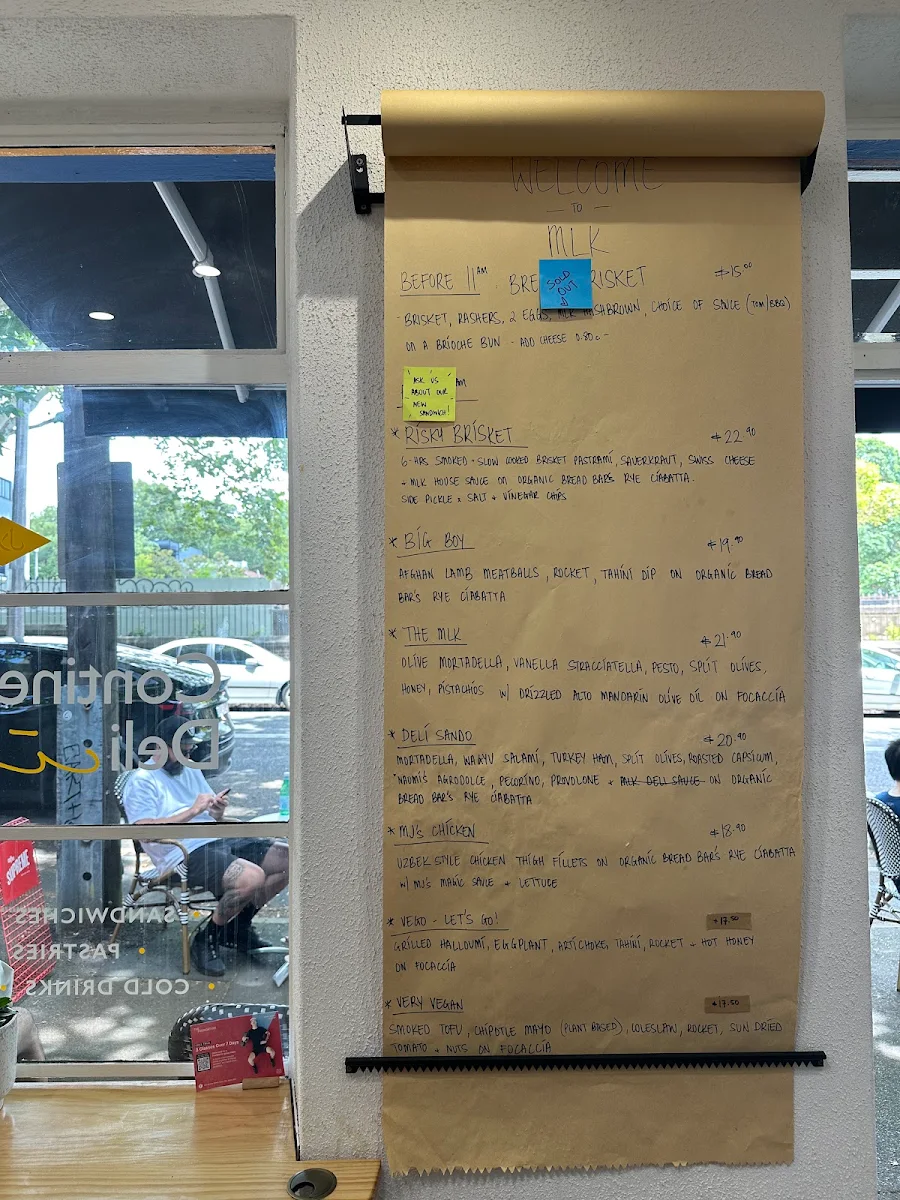 WELCOME
— TO —
MLK
BEFORE 11AM BRE RISKET $15.00
SOLD OUT
- BRISKET, RASHERS, 2 EGGS, MLK HASHBROWN, CHOICE OF SAUCE (TOM/BBQ)
ON A BRIOCHE BUN - ADD CHEESE 0.80c -
ASK US
ABOUT OUR
NEW
SANDWICH!
AM
* RISKY BRISKET $22.90
6-HRS SMOKED + SLOW COOKED BRISKET PASTRAMI, SAUERKRAUT, SWISS CHEESE
+ MLK HOUSE SAUCE ON ORGANIC BREAD BAR'S RYE CIABATTA.
SIDE PICKLE & SALT + VINEGAR CHIPS
* BIG BOY $19.90
AFGHAN LAMB MEATBALLS, ROCKET, TAHINI DIP ON ORGANIC BREAD
BAR'S RYE CIABATTA
* THE MLK $21.90
OLIVE MORTADELLA, VANELLA STRACCIATELLA, PESTO, SPLIT OLIVES,
HONEY, PISTACHIOS W/ DRIZZLED ALTO MANDARIN OLIVE OIL ON FOCACCIA
* DELI SANDO $20.90
MORTADELLA, WAGYU SALAMI, TURKEY HAM, SPLIT OLIVES, ROASTED CAPSICUM,
NAOMI'S AGRODOLCE, PECORINO, PROVOLONE + MLK DELI SAUCE ON ORGANIC
BREAD BAR'S RYE CIABATTA
* MJ'S CHICKEN $18.90
UZBEK STYLE CHICKEN THIGH FILLETS ON ORGANIC BREAD BAR'S RYE CIABATTA
W/ MJ'S MAGIC SAUCE + LETTUCE
* VEGO - LET'S GO! $17.50
GRILLED HALLOUMI, EGGPLANT, ARTICHOKE, TAHINI, ROCKET + HOT HONEY
ON FOCACCIA
* VERY VEGAN $17.50
SMOKED TOFU, CHIPOTLE MAYO (PLANT BASED), COLESLAW, ROCKET, SUN DRIED
TOMATO + NUTS ON FOCACCIA
Contine
Deli
SUPREME
SANDWICHES
PASTRIES
COLD DRINKS